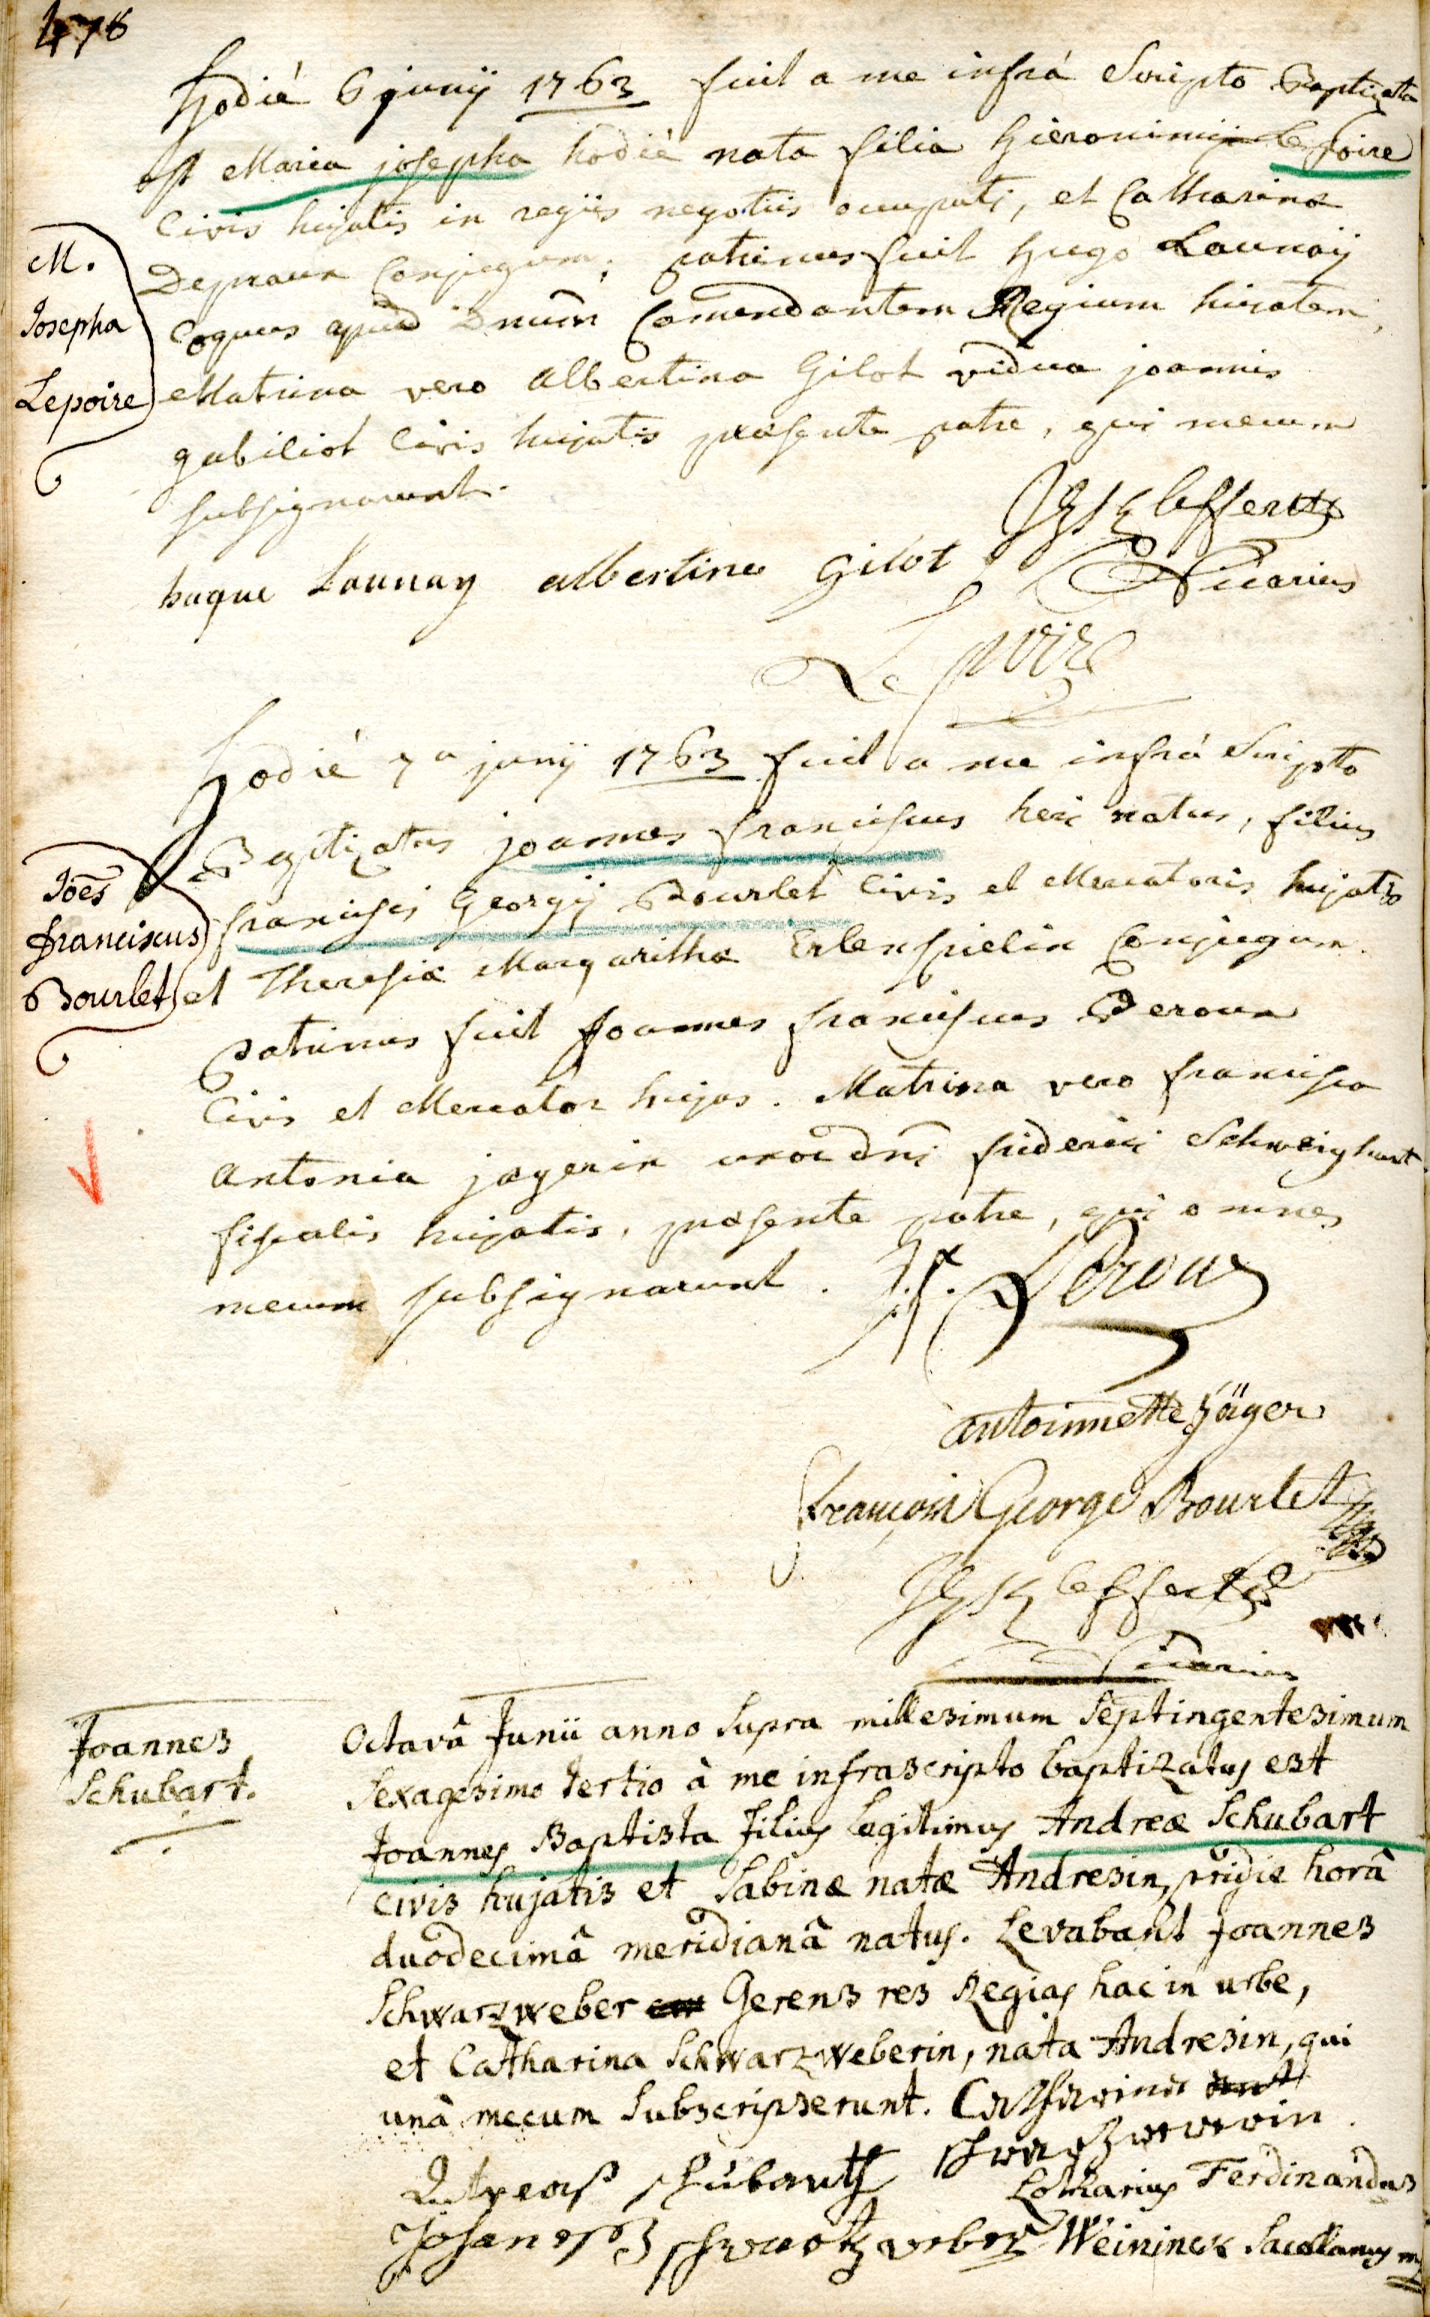 478
Hodié 6 junij 1763 fuit a me infrá Scripto Baptizata
est Maria josepha hodié nata filia Hieronimij le poire
Civis hujatis in regiis negotiis occupati, et Catharina
Depraux Conjugum; patrinus fuit hugo Launaÿ
Coquus apud Dnum Comendantem Regium hujatem,
Matrina vero Albertina Gilot vidua joannis
gubiliot Civis hujatis præsente patre, qui mecum
subsignarunt.
M.
Josepha
Lepoire
hugue Launay albertine Gilot
Vicarius
Le poire
Hodié 7a junij 1763 fuit a me infrá Scripto
Baptizatus joannes franciscus heri natus, filius
francisci Georgij Bourlet Civis et Mercatoris hujatis
et Theresiæ Margarithæ Erlenspielin Conjugum.
Patrinus fuit Joannes franciscus Deroux
Civis et Mercator hujas. Matrina vero francisca
Antonia jægerin uxor dni friderici Schweighart
fiscalis hujatis, præsente patre, qui omnes
mecum subsignarunt.
Joes
franciscus
Bourlet
J.f. Deroux
antoinnette Jäger
françois George Bourlet
Vicarius
Joannes
Schubart.
Octavâ Junii anno supra millesimum Septingentesimum
Sexagesimo tertio à me infrascripto baptizatus est
Joannes Baptista filius legitimus Andreæ Schubart
civis hujatis et Sabinæ natæ Andresin, pridie horâ
duodecimâ meridianâ natus. Levabant Joannes
Schwarzweber Gerens res Regias hac in urbe,
et Catharina Schwarzweberin, nata Andresin, qui
unà mecum subscripserunt. Catharina
Andreas schubarth
Lotharius Ferdinandus
Johanes schwartzweber Weininck Sacellanus